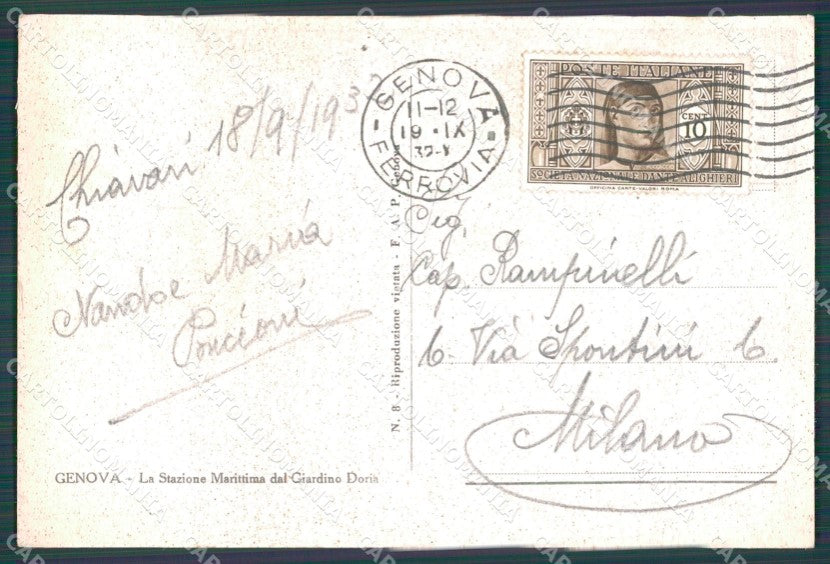 Chiavari 18/9/193
Nando e Maria
Poncioni
GENOVA - La Stazione Marittima dal Giardino Doria
N. 8 - Riproduzione vietata - F. A. P.
GENOVA
11-12
19 · IX
32-X
FERROVIA
POSTE ITALIANE
CENT
10
SOCIETÀ NAZIONALE DANTE ALIGHIERI
OFFICINA CARTE-VALORI ROMA
Sig.
Cap. Rampinelli
6. Via Spontini 6.
Milano
CARTOLINOMANIA